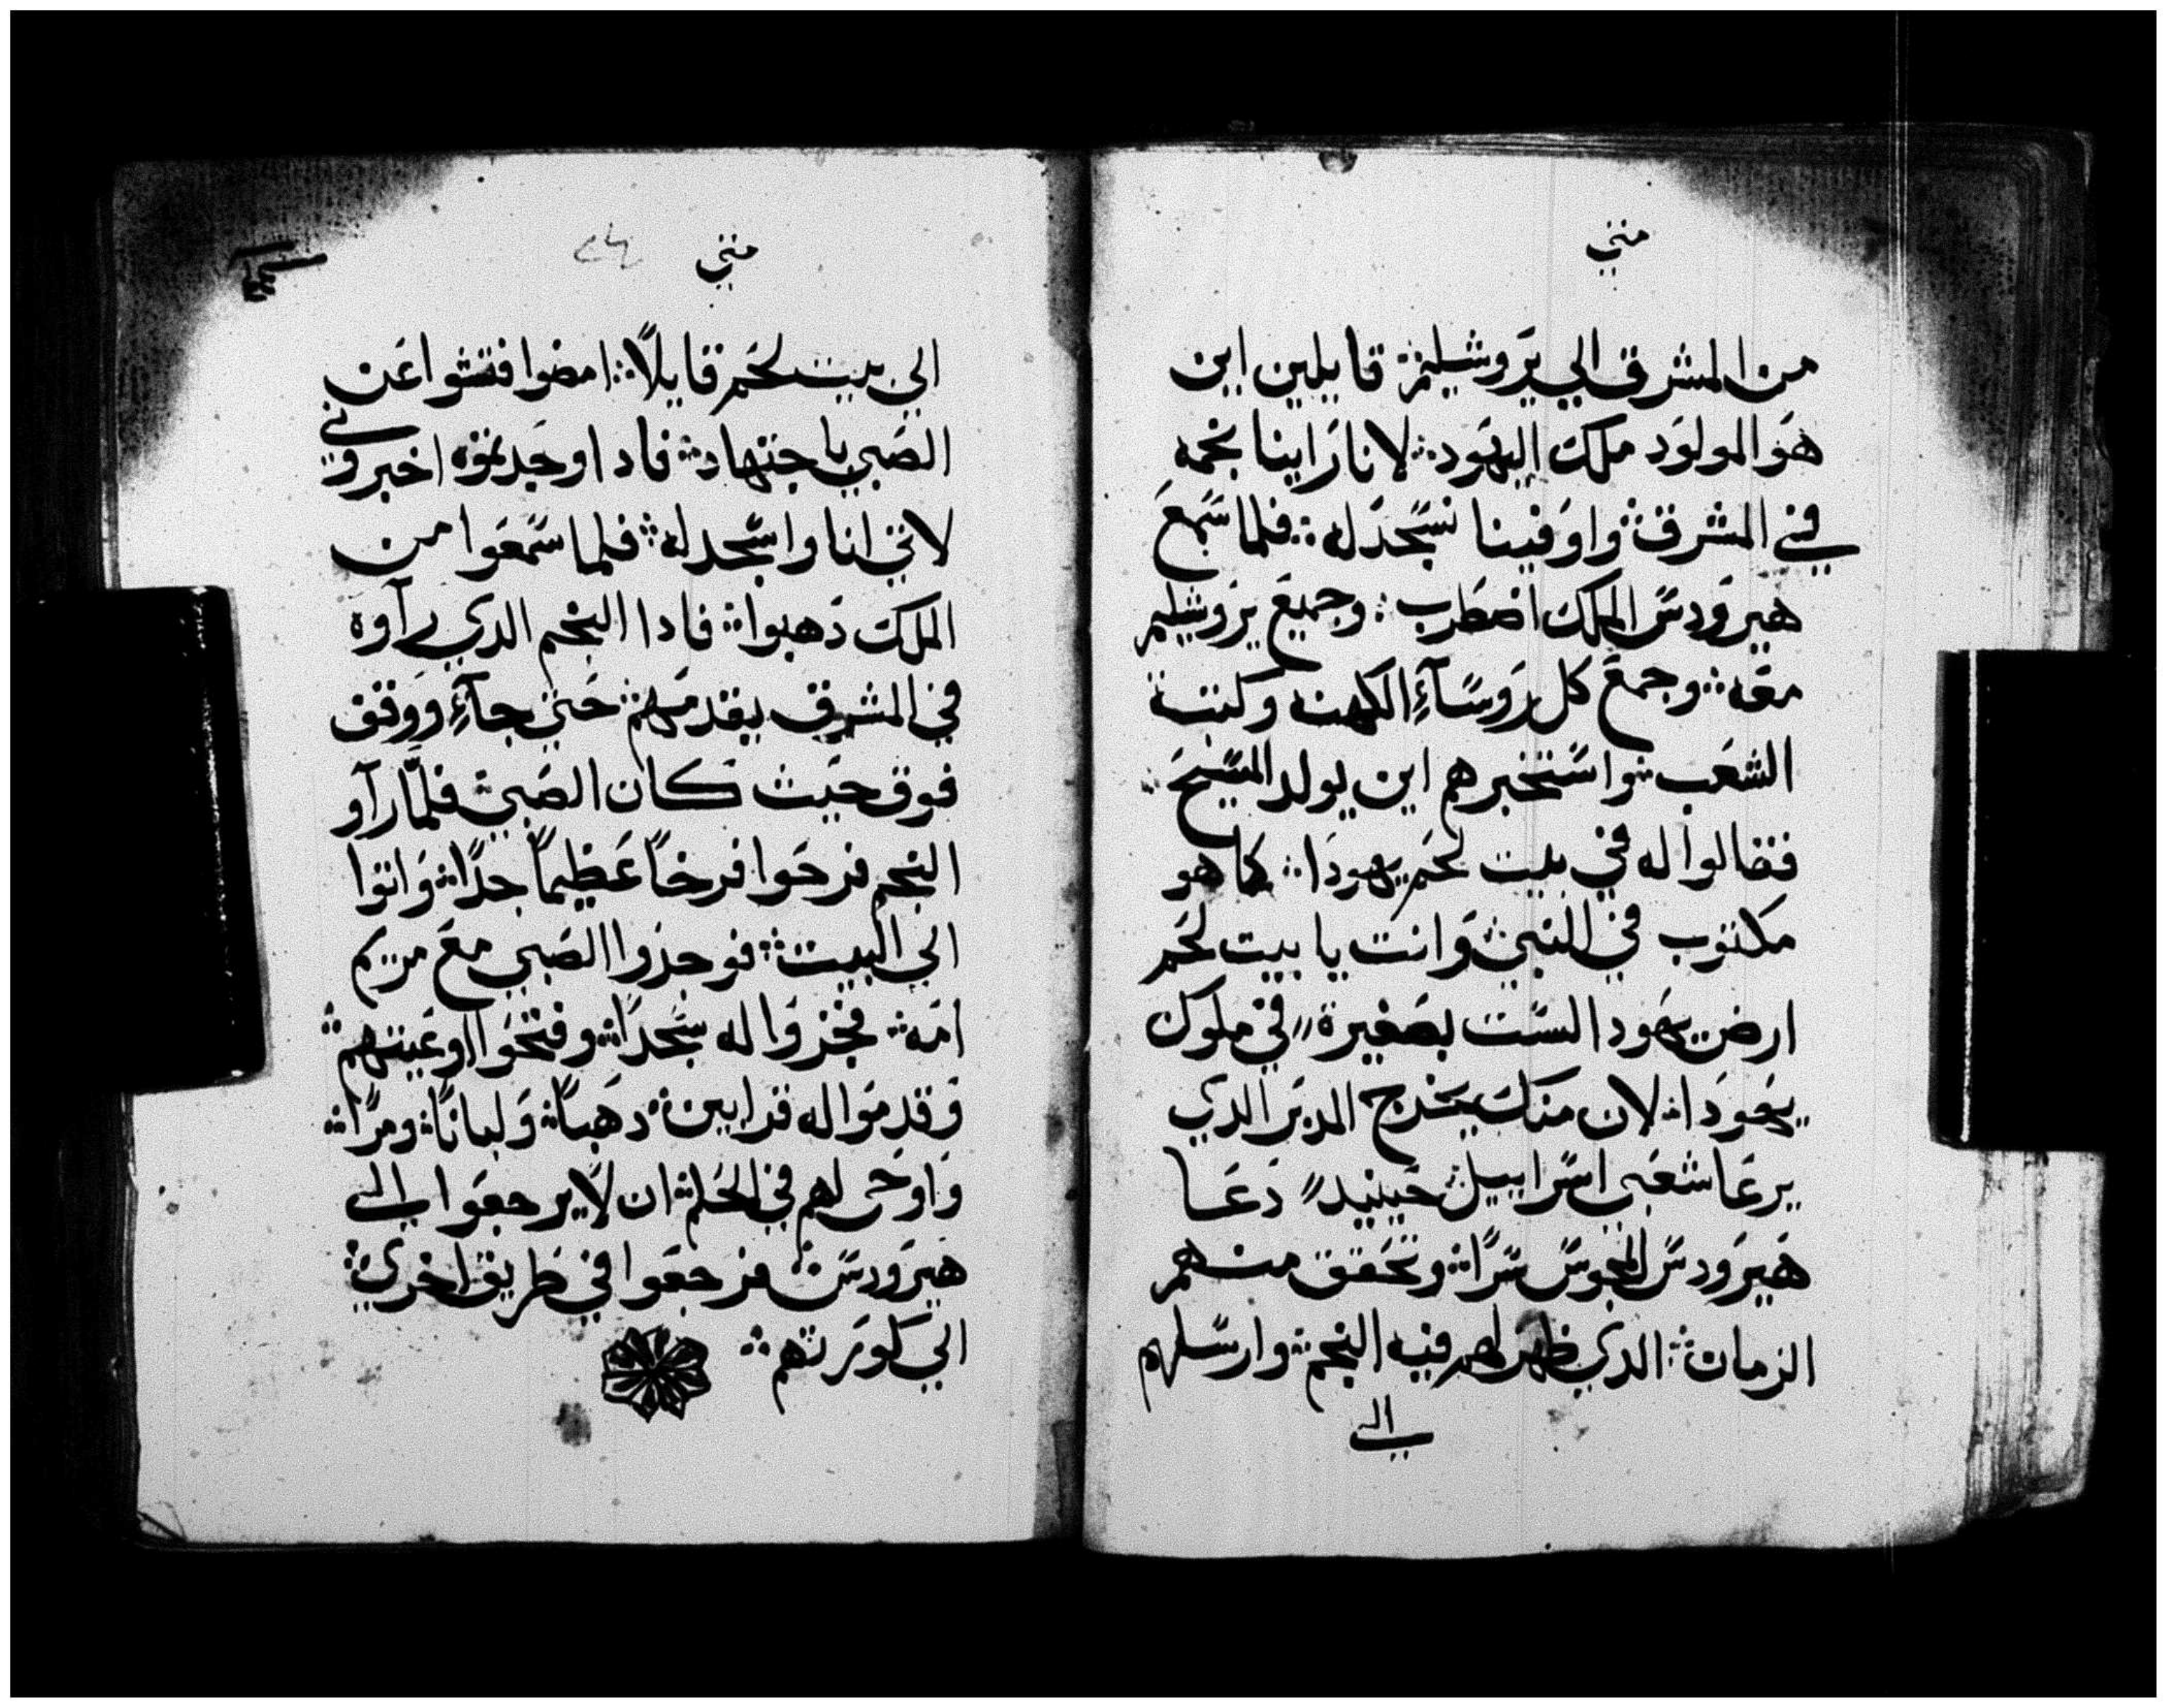 متي
من المشرق الي يروشليم ܀ قايلين اين
هو المولود ملك اليهود ܀ لانا راينا نجمه
في المشرق ܀ واوفينا نسجد له ܀ فلما سمع
هيرودس الملك اضطرب ܀ وجميع يروشليم
معه ܀ وجمع كل روسآء الكهنه وكتبة
الشعب ܀ واستخبرهم اين يولد المسيح
فقالوا له في بيت لحم يهودا ܀ كما هو
مكتوب في النبي ܀ وانت يا بيت لحم
ارض يهودا لست بصغيرة في ملوك
يهودا ܀ لان منك يخرج المدبر الدي
يرعا شعبي اسراييل ܀ حينيد دعا
هيرودس المجوس سرًا ܀ وتحقق منهم
الزمان ܀ الدي ظهر لهم فيه النجم ܀ وارسلهم
الي
متي
الي بيت لحم قايلاً ܀ امضوا فتشوا عن
الصبي باجتهاد ܀ فادا وجدتموه اخبروني
لاتي انا واسجد له ܀ فلما سمعوا من
الملك دهبوا ܀ فادا النجم الدي رآوه
في المشرق يقدمهم ܀ حتي جآء ووقف
فوق حيث كان الصبي ܀ فلمّا رآو
النجم فرحوا فرحاً عظيماً جدًا ܀ واتوا
الي البيت ܀ فوجدوا الصبي مع مريم
امه ܀ فخروا له سجدًا ܀ وفتحوا اوعيتهم ܀
وقدموا له قرابين ܀ دهبًا ܀ ولبانًا ܀ ومرًا ܀
واوحى لهم في الحلم ܀ ان لا يرجعوا الي
هيرودس ܀ فرجعوا في طريق اخري ܀
الي كورتهم ܀